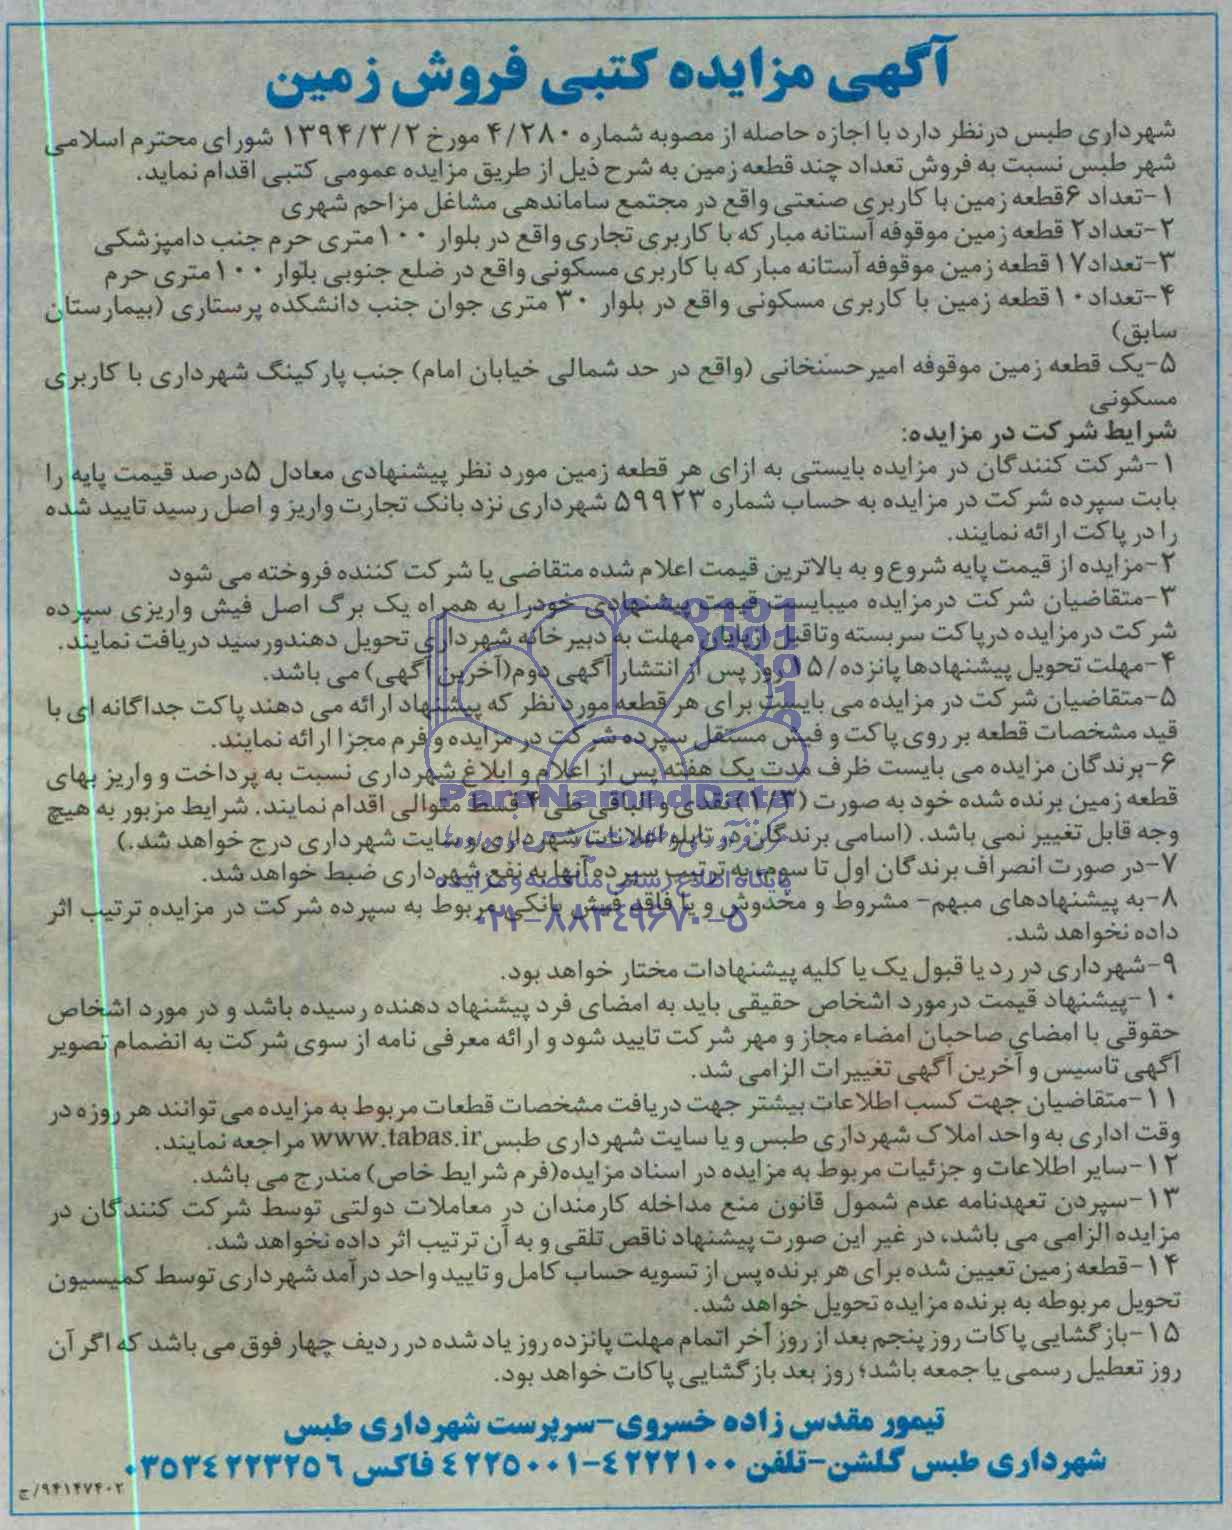 آگهی مزایده کتبی فروش زمین
شهرداری طبس درنظر دارد با اجازه حاصله از مصوبه شماره ۴/۲۸۰ مورخ ۱۳۹۴/۳/۲ شورای محترم اسلامی
شهر طبس نسبت به فروش تعداد چند قطعه زمین به شرح ذیل از طریق مزایده عمومی کتبی اقدام نماید.
۱-تعداد ۶قطعه زمین با کاربری صنعتی واقع در مجتمع ساماندهی مشاغل مزاحم شهری
۲-تعداد۲ قطعه زمین موقوفه آستانه مبارکه با کاربری تجاری واقع در بلوار ۱۰۰متری حرم جنب دامپزشکی
۳-تعداد۱۷قطعه زمین موقوفه آستانه مبارکه با کاربری مسکونی واقع در ضلع جنوبی بلوار ۱۰۰متری حرم
۴-تعداد۱۰قطعه زمین با کاربری مسکونی واقع در بلوار ۳۰ متری جوان جنب دانشکده پرستاری (بیمارستان
سابق)
۵-یک قطعه زمین موقوفه امیرحسنخانی (واقع در حد شمالی خیابان امام) جنب پارکینگ شهرداری با کاربری
مسکونی
شرایط شرکت در مزایده:
۱-شرکت کنندگان در مزایده بایستی به ازای هر قطعه زمین مورد نظر پیشنهادی معادل ۵درصد قیمت پایه را
بابت سپرده شرکت در مزایده به حساب شماره ۵۹۹۲۳ شهرداری نزد بانک تجارت واریز و اصل رسید تایید شده
را در پاکت ارائه نمایند.
۲-مزایده از قیمت پایه شروع و به بالاترین قیمت اعلام شده متقاضی یا شرکت کننده فروخته می شود
۳-متقاضیان شرکت درمزایده میبایست قیمت پیشنهادی خودرا به همراه یک برگ اصل فیش واریزی سپرده
شرکت درمزایده درپاکت سربسته وتاقبل ازپایان مهلت به دبیرخانه شهرداری تحویل دهندورسید دریافت نمایند.
۴-مهلت تحویل پیشنهادها پانزده/۱۵روز پس از انتشار آگهی دوم(آخرین آگهی) می باشد.
۵-متقاضیان شرکت در مزایده می بایست برای هر قطعه مورد نظر که پیشنهاد ارائه می دهند پاکت جداگانه ای با
قید مشخصات قطعه بر روی پاکت و فیش مستقل سپرده شرکت در مزایده و فرم مجزا ارائه نمایند.
۶-برندگان مزایده می بایست ظرف مدت یک هفته پس از اعلام و ابلاغ شهرداری نسبت به پرداخت و واریز بهای
قطعه زمین برنده شده خود به صورت (۱/۳) نقدی و الباقی طی ۴ قسط متوالی اقدام نمایند. شرایط مزبور به هیچ
وجه قابل تغییر نمی باشد. (اسامی برندگان در تابلو اعلانات شهرداری و سایت شهرداری درج خواهد شد.)
۷-در صورت انصراف برندگان اول تا سوم، به ترتیب سپرده آنها به نفع شهرداری ضبط خواهد شد.
۸-به پیشنهادهای مبهم- مشروط و مخدوش و یا فاقد فیش بانکی مربوط به سپرده شرکت در مزایده ترتیب اثر
داده نخواهد شد.
۹-شهرداری در رد یا قبول یک یا کلیه پیشنهادات مختار خواهد بود.
۱۰-پیشنهاد قیمت درمورد اشخاص حقیقی باید به امضای فرد پیشنهاد دهنده رسیده باشد و در مورد اشخاص
حقوقی با امضای صاحبان امضاء مجاز و مهر شرکت تایید شود و ارائه معرفی نامه از سوی شرکت به انضمام تصویر
آگهی تاسیس و آخرین آگهی تغییرات الزامی شد.
۱۱-متقاضیان جهت کسب اطلاعات بیشتر جهت دریافت مشخصات قطعات مربوط به مزایده می توانند هر روزه در
وقت اداری به واحد املاک شهرداری طبس و یا سایت شهرداری طبسwww.tabas.ir مراجعه نمایند.
۱۲-سایر اطلاعات و جزئیات مربوط به مزایده در اسناد مزایده(فرم شرایط خاص) مندرج می باشد.
۱۳-سپردن تعهدنامه عدم شمول قانون منع مداخله کارمندان در معاملات دولتی توسط شرکت کنندگان در
مزایده الزامی می باشد، در غیر این صورت پیشنهاد ناقص تلقی و به آن ترتیب اثر داده نخواهد شد.
۱۴-قطعه زمین تعیین شده برای هر برنده پس از تسویه حساب کامل و تایید واحد درآمد شهرداری توسط کمیسیون
تحویل مربوطه به برنده مزایده تحویل خواهد شد.
۱۵-بازگشایی پاکات روز پنجم بعد از روز آخر اتمام مهلت پانزده روز یاد شده در ردیف چهار فوق می باشد که اگر آن
روز تعطیل رسمی یا جمعه باشد؛ روز بعد بازگشایی پاکات خواهد بود.
تیمور مقدس زاده خسروی-سرپرست شهرداری طبس
شهرداری طبس گلشن-تلفن ۴۲۲۲۱۰۰-۴۲۲۵۰۰۱ فاکس ۰۳۵۳۴۲۲۳۲۵۶
۹۴۱۴۷۴۰۲/ج
ParsNamadData
پایگاه اطلاع رسانی مناقصه و مزایده
۰۲۱-۸۸۳۴۹۶۷۰-۵